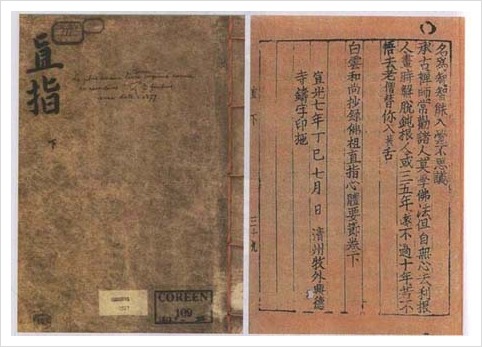 直指
下
Le plus ancien livre imprimé connu
date = 1377
COREEN
109
名爲智智能入不思議
承古禪師常勸諸人莫學佛法但自無心去利根
人晝時解脫鈍根人或三五年遠不過十年若不
悟去老僧替你入舌
白雲和尚抄錄佛祖直指心體要節卷下
宣光七年丁巳七月 日 清州牧外興德
寺鑄字印施
下
三十九